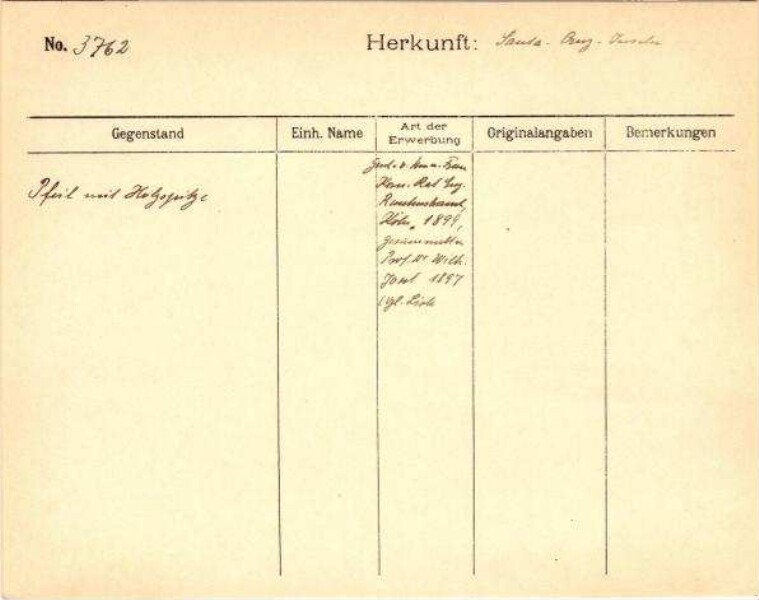 No. 3762
Herkunft: Santa-Cruz-Inseln
Gegenstand
Einh. Name
Art der
Erwerbung
Originalangaben
Bemerkungen
Pfeil mit Holzspitze
Gesch. v. Frau
Kom. Rat Eug.
Rautenstrauch,
Köln, 1899,
gesammelt v.
Prof. Dr Wilh.
Joest 1897
vgl. Liste